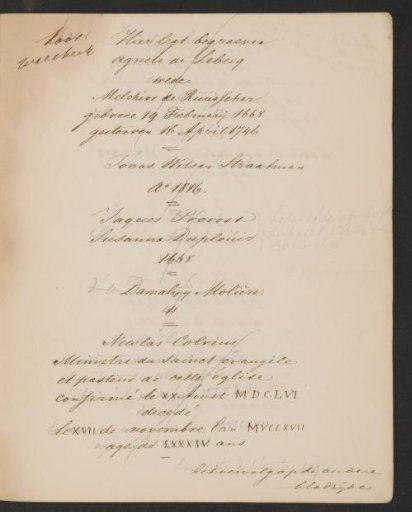 voor
Hier legt begraeven
agneta de Lebecq
wede
Melchior de Ruusscher
geboren 19 Februarij 1668
gestorven 16 April 1746
Jonas Witsen Straatman
A° 1816.
Jaques Provost
Susanna Duplouis
1668
Damalrij Molière
Nicolas Colvius
Ministre du sainct évangile
et pasteur de cette église
confirmé le xx aoust MDCLVI
decedé
le XVII de novembre l'an MVCCXVII
agé de LXXXIV ans
op de andere
bladzijde